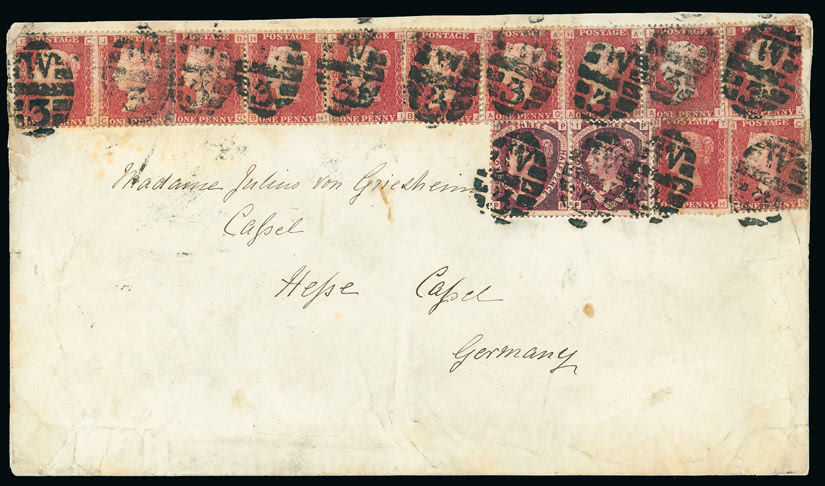 POSTAGE POSTAGE POSTAGE POSTAGE POSTAGE POSTAGE POSTAGE POSTAGE POSTAGE POSTAGE
W W W W W
3 3 3 3 3
ONE PENNY ONE PENNY ONE PENNY ONE PENNY ONE PENNY ONE PENNY ONE PENNY ONE PENNY ONE PENNY ONE PENNY
POSTAGE
W W W W
ONE PENNY ONE PENNY
Madame Julius von Griesheim
Caſsel
Heſse Caſsel
Germany